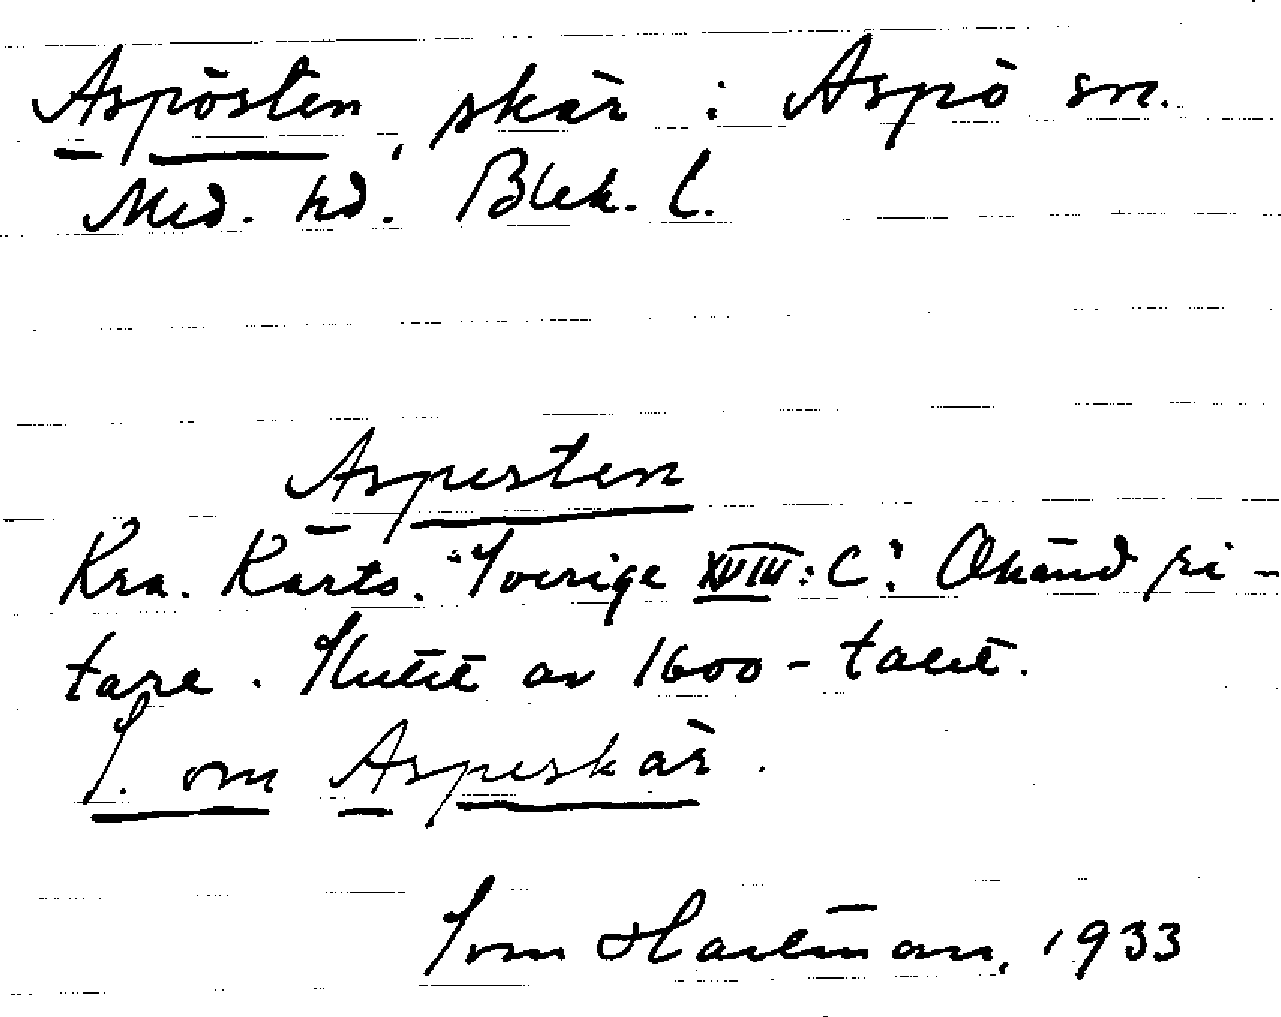 Aspösten, skär i Aspö sn.
Med. hd. Blek. l.
Aspesten
Kra. Karts. Sverige XVIII: C: Okänd ri-
tare. Slutet av 1600-talet.
S. om Aspeskär.
Tom Hartman, 1933